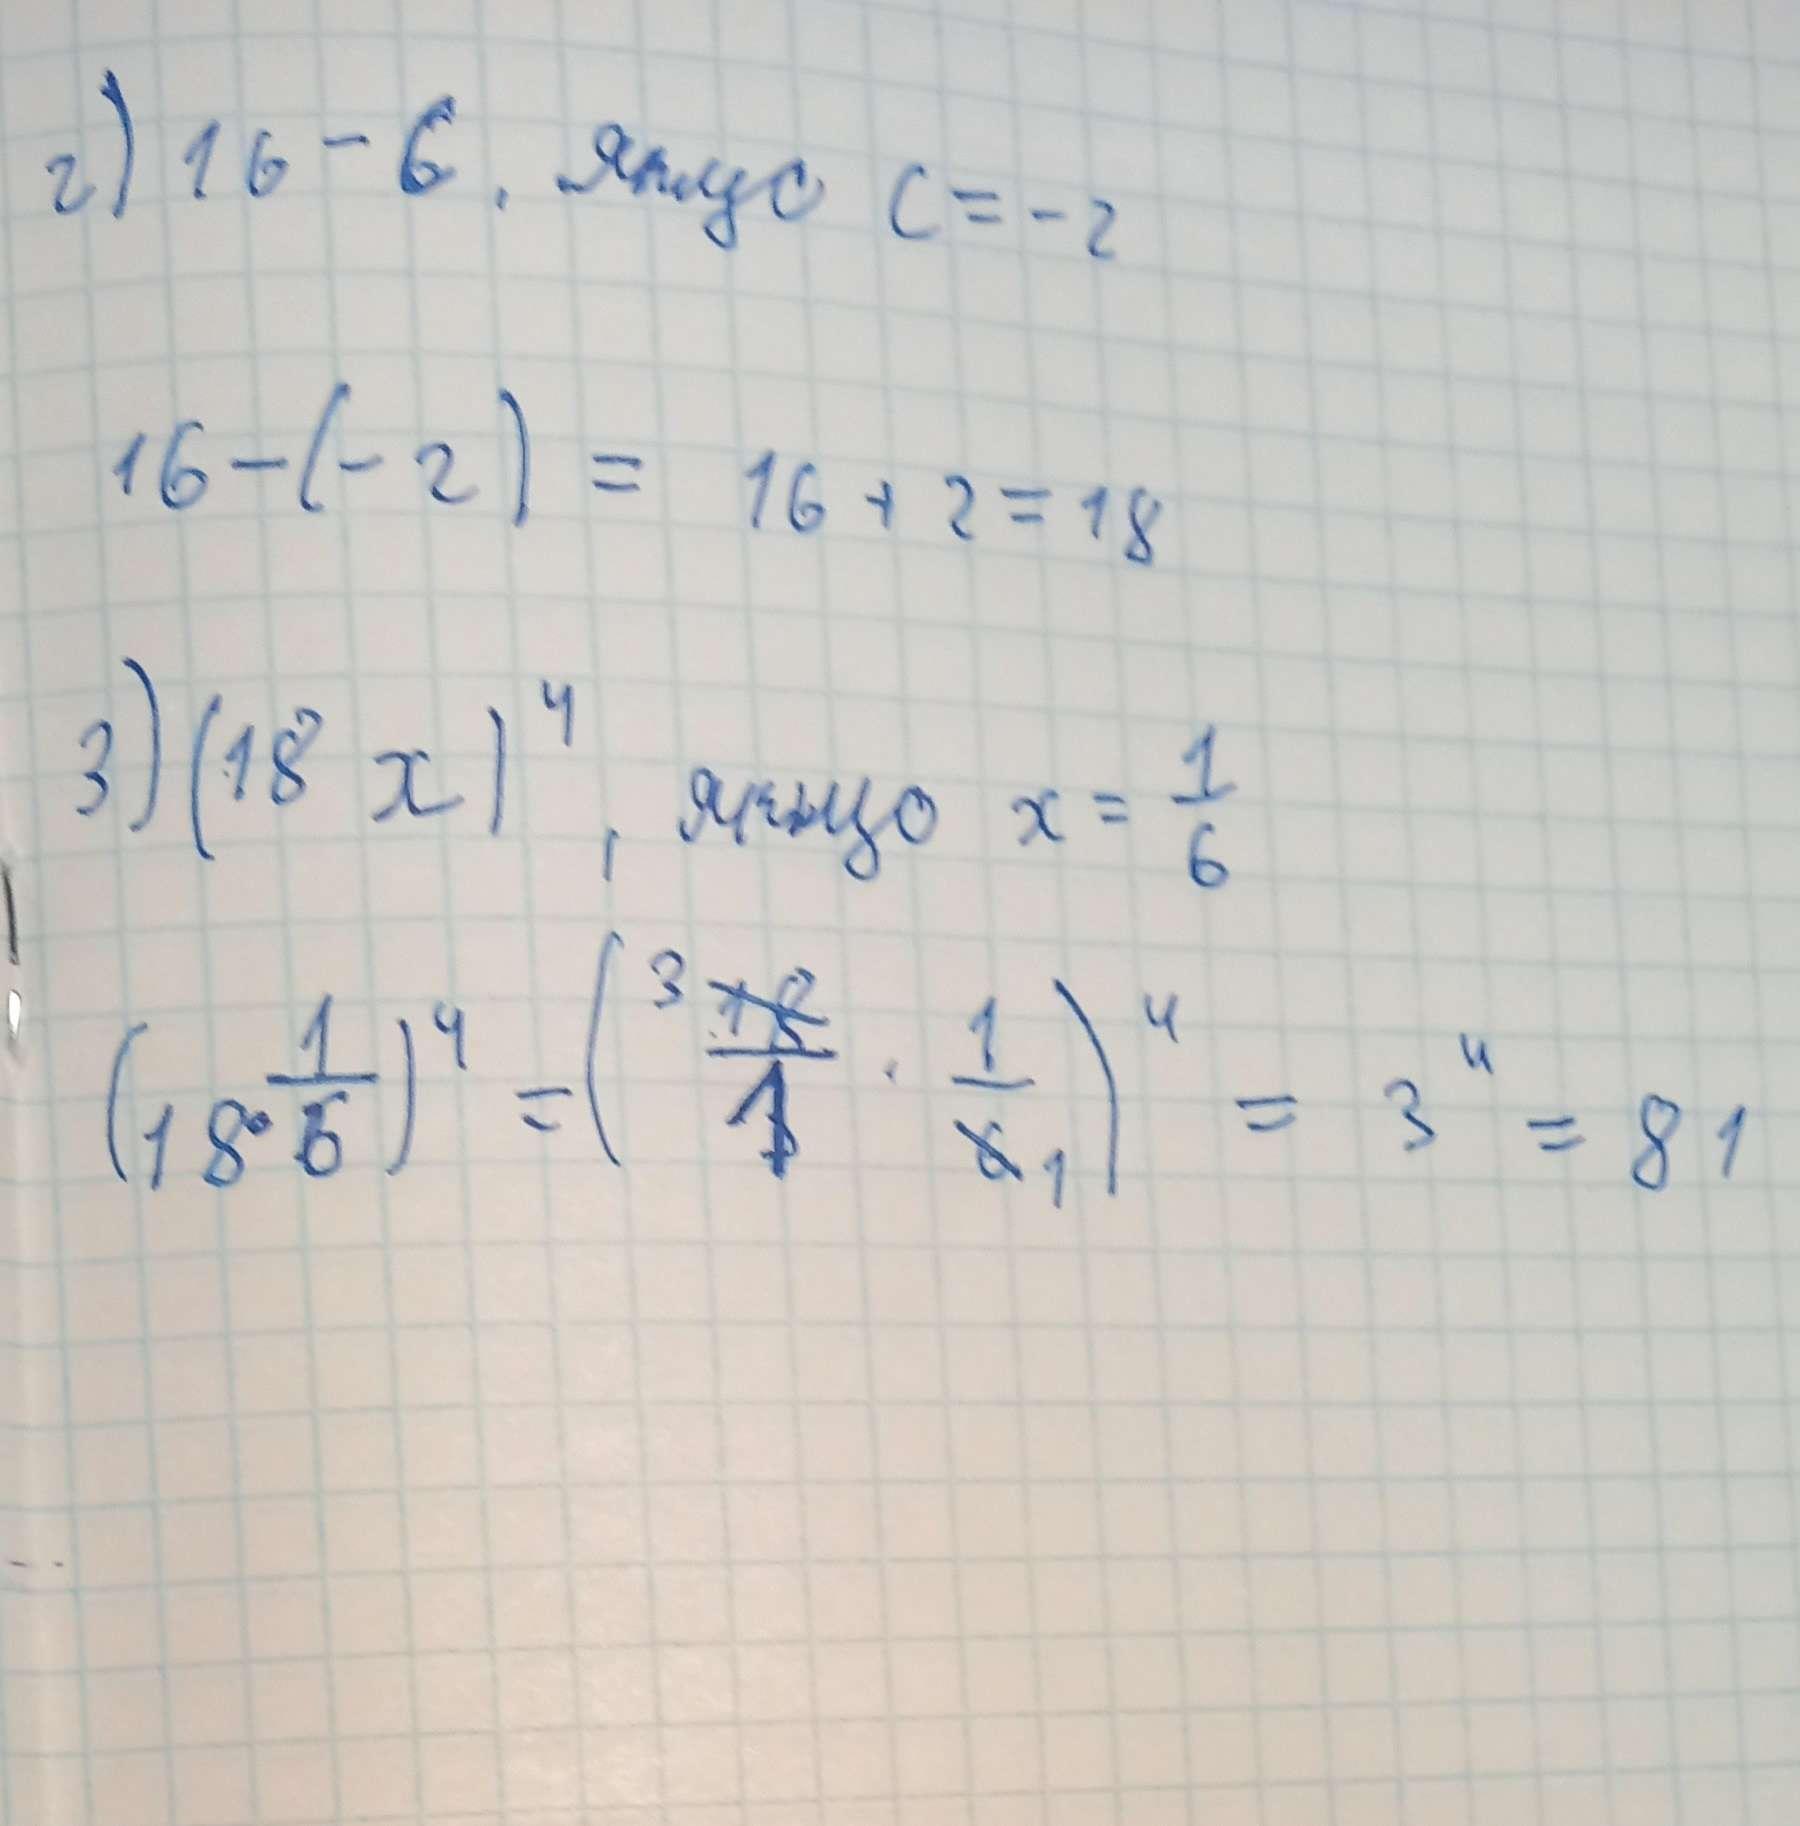 2) 16 - 6, якщо c = -2
16 - (-2) = 16 + 2 = 18
3) (18 x)⁴, якщо x = 1/6
(18 · 1/6)⁴ = (³ 18/1 · 1/6 ₁)⁴ = 3⁴ = 81